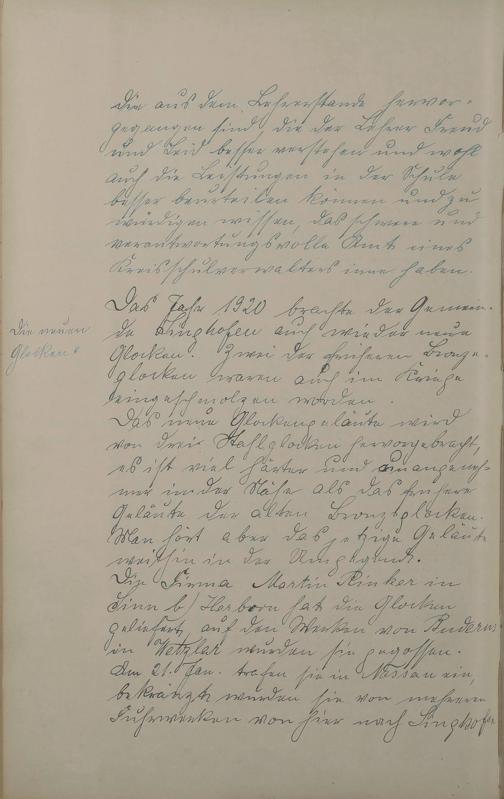 die aus dem Lehrerstande hervor-
gegangen sind, die der Lehrer Freud
und Leid besser verstehen und wohl
auch die Leistungen in der Schule
besser beurteilen können und zu
würdigen wissen, das schwere und
verantwortungsvolle Amt eines
Kreisschulverwalters inne haben.
Die neuen
Glocken.
Das Jahr 1920 brachte der Gemein-
de Singhofen auch wieder neue
Glocken. Zwei der früheren Bronze-
glocken waren auch im Kriege
eingeschmolzen worden.
Das neue Glockengeläute wird
von drei Stahlglocken hervorgebracht,
es ist viel härter und unangeneh-
mer in der Nähe als das frühere
Geläute der alten Bronzeglocken.
Man hört aber das jetzige Geläute
weithin in der Umgegend.
Die Firma Martin Rinker in
Sinn b/ Herborn hat die Glocken
geliefert, auf den Werken von Buderus
in Wetzlar wurden sie gegossen.
Am 21. Jan. trafen sie in Nassau ein,
bekränzt wurden sie von mehreren
Fuhrwerken von hier nach Singhofen